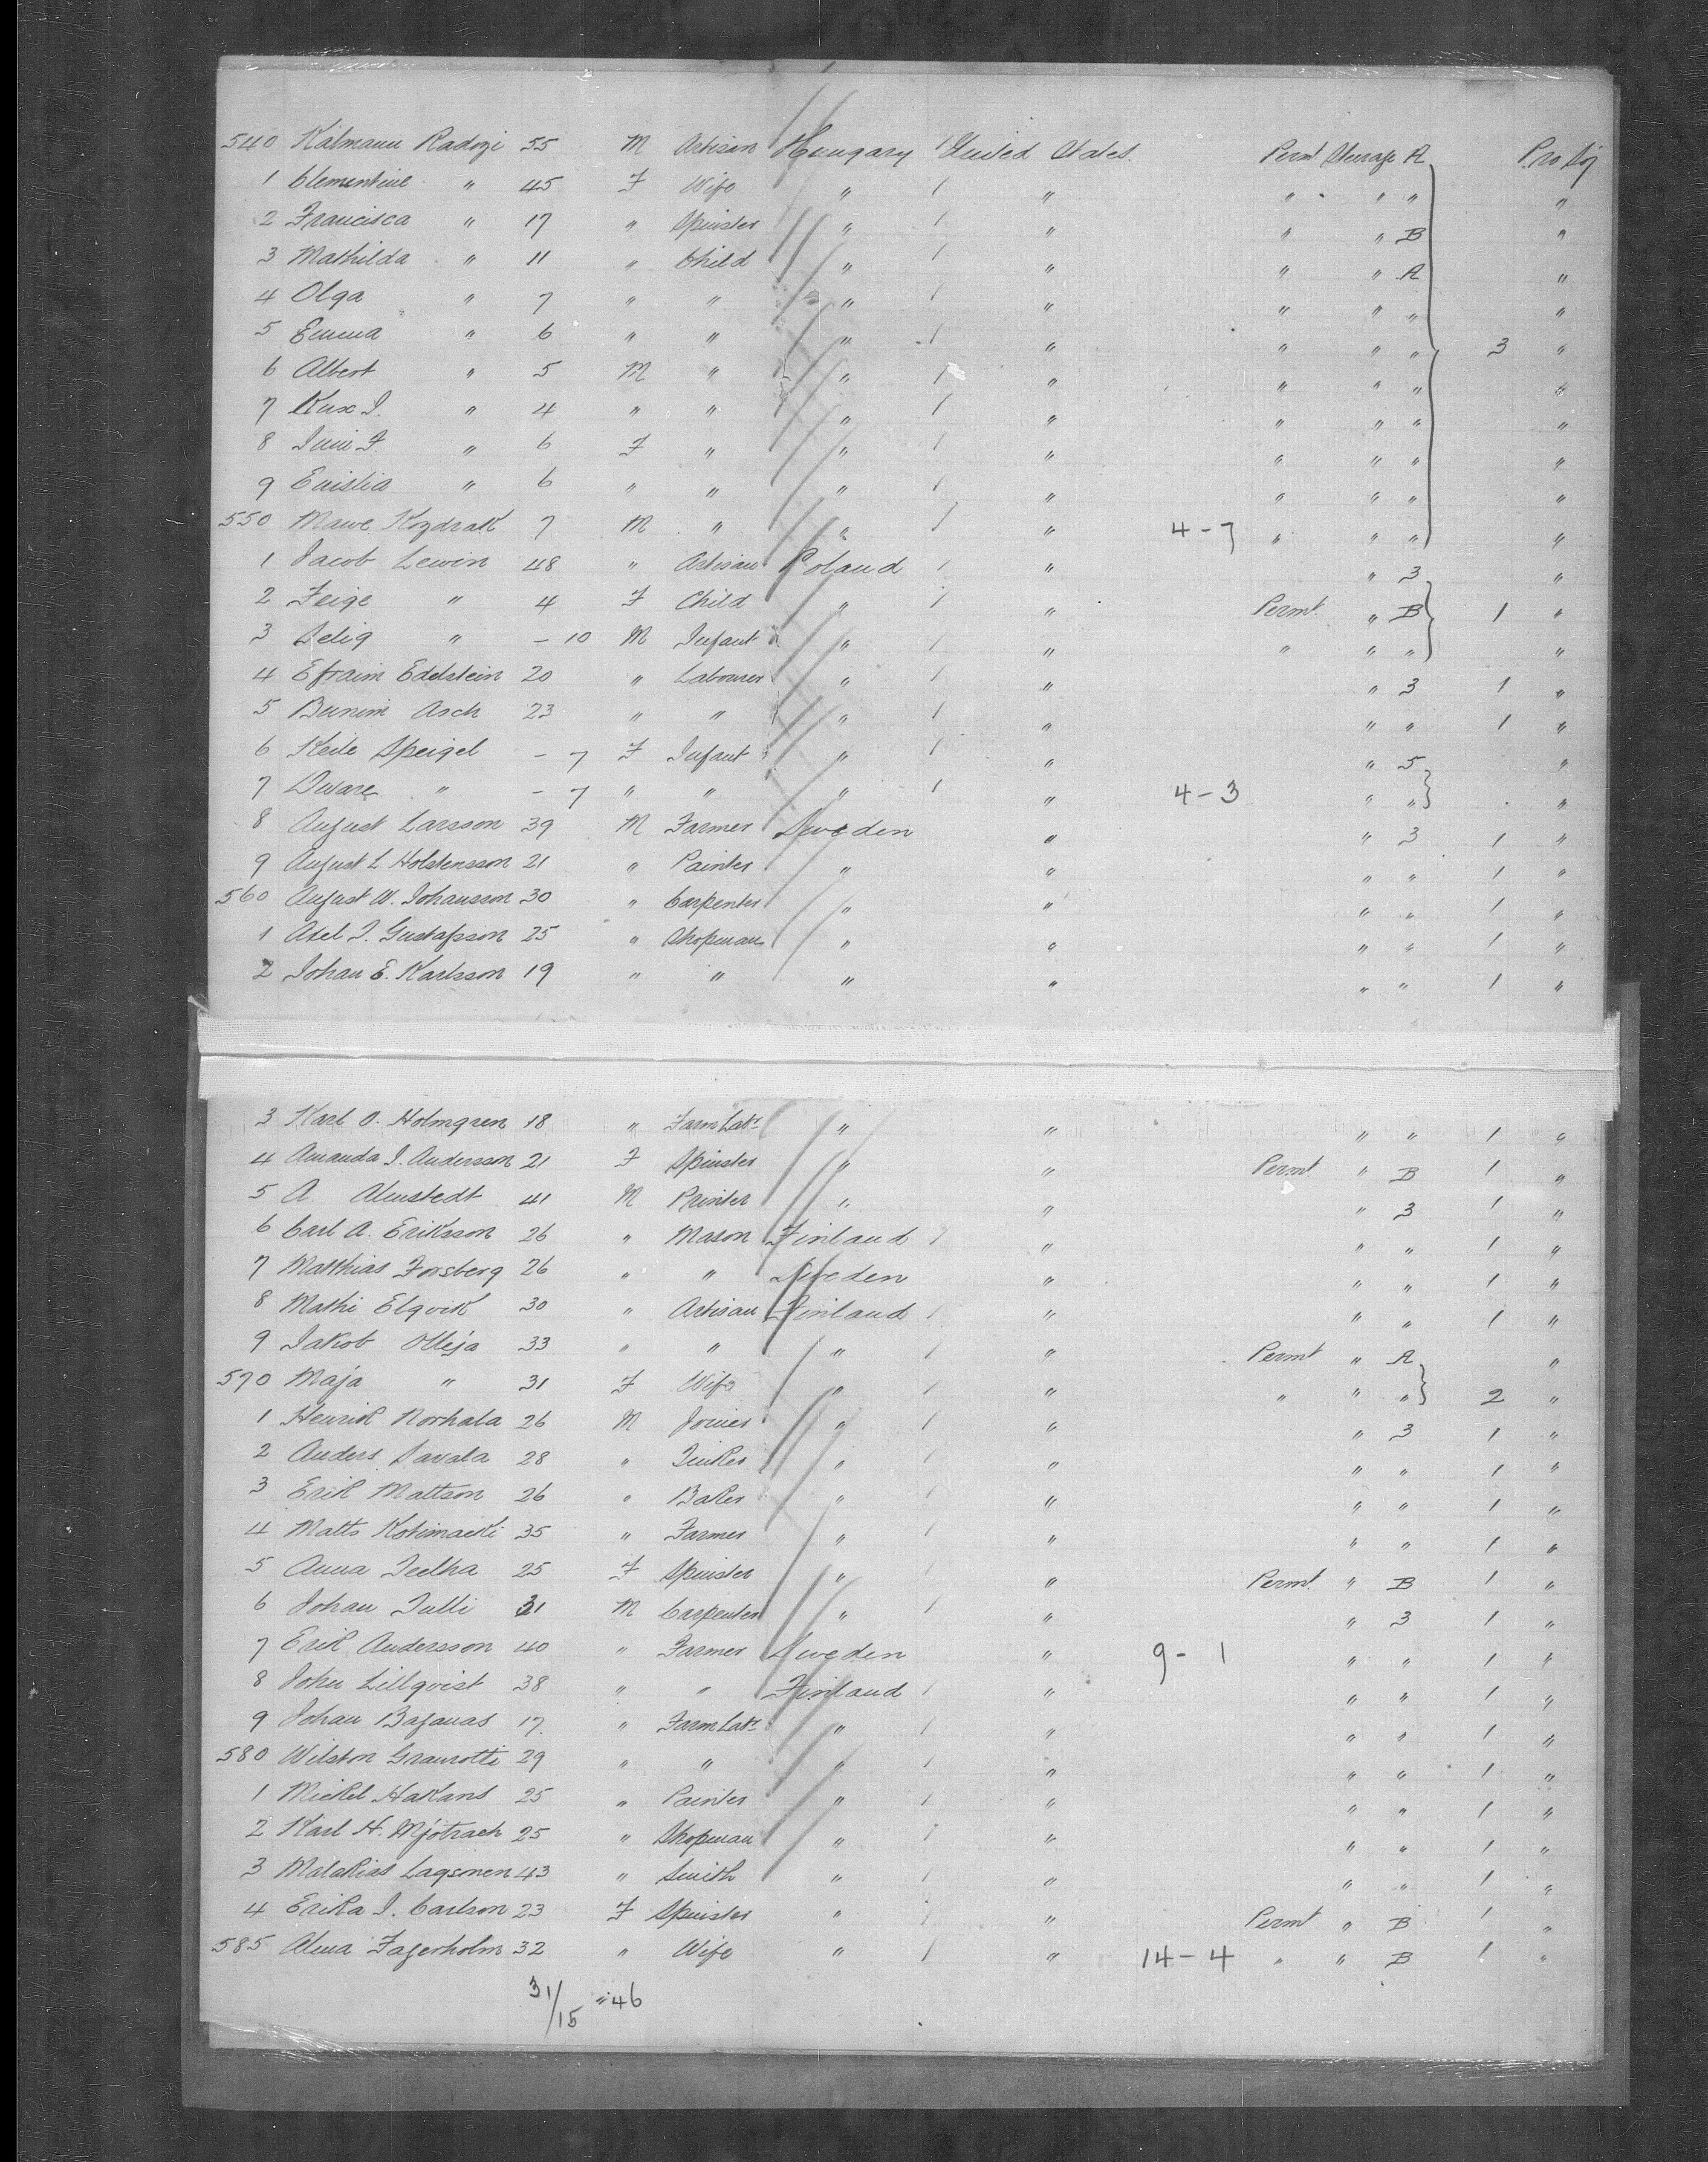 540 Kálmann Radozi 55 M Artisan Hungary / United States. Permt Steerage A Pro Soj
1 Clementine " 45 F Wife " / " " " " "
2 Francisca " 17 " Spinster " / " " " B "
3 Mathilda " 11 " Child " / " " " A "
4 Olga " 7 " " " / " " " " "
5 Emma " 6 " " " / " " " " 3 "
6 Albert " 5 M " " / " " " " "
7 " 4 " " " / " " " " "
8 " 6 F " " / " " " " "
9 " 6 " " " / " " " " "
550 Mawe Kozdrak 7 M " " / " 4-7 " " " "
1 Jacob Lewin 48 " Artisan Poland / " " 3 "
2 Feige " 4 F Child " / " Permt. " B 1 "
3 Selig " - 10 M Infant " / " " " " "
4 Efraim Edelstein 20 " Labourer " / " " 3 1 "
5 Bunim Asch 23 " " " / " " " 1 "
6 Keile Speigel - 7 F Infant " / " " 5 "
7 Dware " - 7 " " " / " 4-3 " " "
8 August Larsson 39 M Farmer Sweden " " 3 1 "
9 August L Holstensson 21 " Painter " " " " 1 "
560 August W. Johansson 30 " Carpenter " " " " 1 "
1 Axel I. Gustafsson 25 " Shopman " " " " 1 "
2 Johan E. Karlsson 19 " " " " " " 1 "
3 Karl O. Holmgren 18 " Farm Labr " " " " 1 "
4 Amanda I. Andersson 21 F Spinster " " Permt " B 1 "
5 A. Almstedt 41 M Printer " " " 3 1 "
6 Carl A. Eriksson 26 " Mason Finland / " " " 1 "
7 Matthias Forsberg 26 " " Sweden " " " 1 "
8 Mathi Elqvik 30 " Artisan Finland / " " " 1 "
9 Jakob Olleja 33 " " " / " Permt " A "
570 Maja " 31 F Wife " / " " " " 2 "
1 Henrik Norhala 26 M Joiner " / " " 3 1 "
2 Anders Savala 28 " Tinker " / " " " 1 "
3 Erik Mattson 26 " Baker " / " " " 1 "
4 Matts Kotimaeki 35 " Farmer " / " " " 1 "
5 Anna Teelha 25 F Spinster " / " Permt. " B 1 "
6 Johan Tulli 31 M Carpenter " / " " 3 1 "
7 Erik Andersson 40 " Farmer Sweden " 9-1 " " 1 "
8 John Lillqvist 38 " " Finland / " " " 1 "
9 Johan Bajanas 17. " Farm Labr " / " " " 1 "
580 Wilston Graurotti 29 " " " / " " " 1 "
1 Mickel Hakans 25 " Painter " / " " " 1 "
2 Karl H. Mjotrach 25 " Shopman " / " " " 1 "
3 Malakias Lagsonen 43 " Smith " / " " " 1 "
4 Erika I. Carlson 23 F Spinster " / " Permt " B 1 "
585 Alma Fagerholm 32 " Wife " / " 14-4 " " B 1 "
31/15 = 46